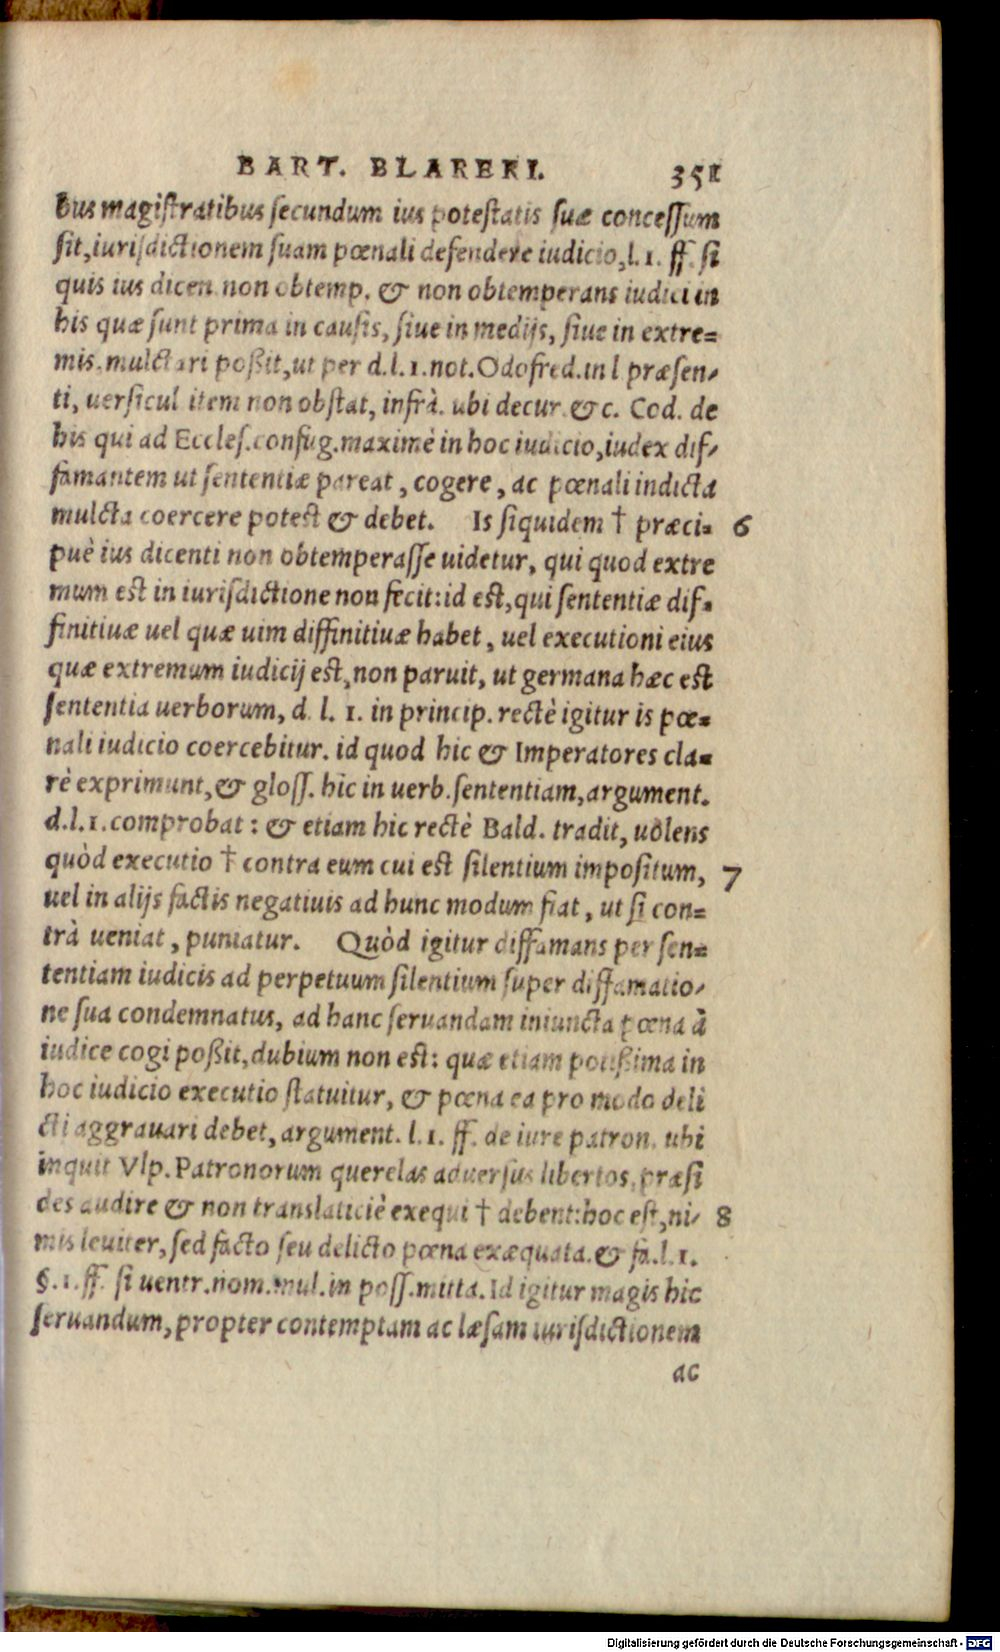 BART. BLARERI. 351
bus magistratibus secundum ius potestatis suæ concessum
sit, iurisdictionem suam pœnali defendere iudicio, l. 1. ff. si
quis ius dicen. non obtemp. & non obtemperans iudici in
his quæ sunt prima in causis, siue in medijs, siue in extre=
mis, mulctari poßit, ut per d. l. 1. not. Odofred. in l præsen-
ti, uersicul item non obstat, infrà. ubi decur. &c. Cod. de
his qui ad Eccles. confug. maximè in hoc iudicio, iudex dif-
famantem ut sententiæ pareat, cogere, ac pœnali indicta
mulcta coercere potest & debet. Is siquidem † præci= 6
puè ius dicenti non obtemperasse uidetur, qui quod extre
mum est in iurisdictione non fecit: id est, qui sententiæ dif=
finitiuæ uel quæ uim diffinitiuæ habet, uel executioni eius
quæ extremum iudicij est, non paruit, ut germana hæc est
sententia uerborum, d. l. 1. in princip. rectè igitur is pœ=
nali iudicio coercebitur. id quod hic & Imperatores cla=
rè exprimunt, & gloss. hic in uerb. sententiam, argument.
d. l. 1. comprobat: & etiam hic rectè Bald. tradit, uolens
quòd executio † contra eum cui est silentium impositum, 7
uel in alijs factis negatiuis ad hunc modum fiat, ut si con=
trà ueniat, puniatur. Quòd igitur diffamans per sen=
tentiam iudicis ad perpetuum silentium super diffamatio-
ne sua condemnatus, ad hanc seruandam iniuncta pœna à
iudice cogi poßit, dubium non est: quæ etiam potißima in
hoc iudicio executio statuitur, & pœna ea pro modo deli
cti aggrauari debet, argument. l. 1. ff. de iure patron. ubi
inquit Vlp. Patronorum querelas aduersus libertos, præsi
des audire & non translaticiè exequi † debent: hoc est, ni- 8
mis leuiter, sed facto seu delicto pœna exæquata. & fa. l. 1.
§. 1. ff. si uentr. nom. mul. in poss. mitta. Id igitur magis hic
seruandum, propter contemptam ac læsam iurisdictionem
ac
Digitalisierung gefördert durch die Deutsche Forschungsgemeinschaft - DFG